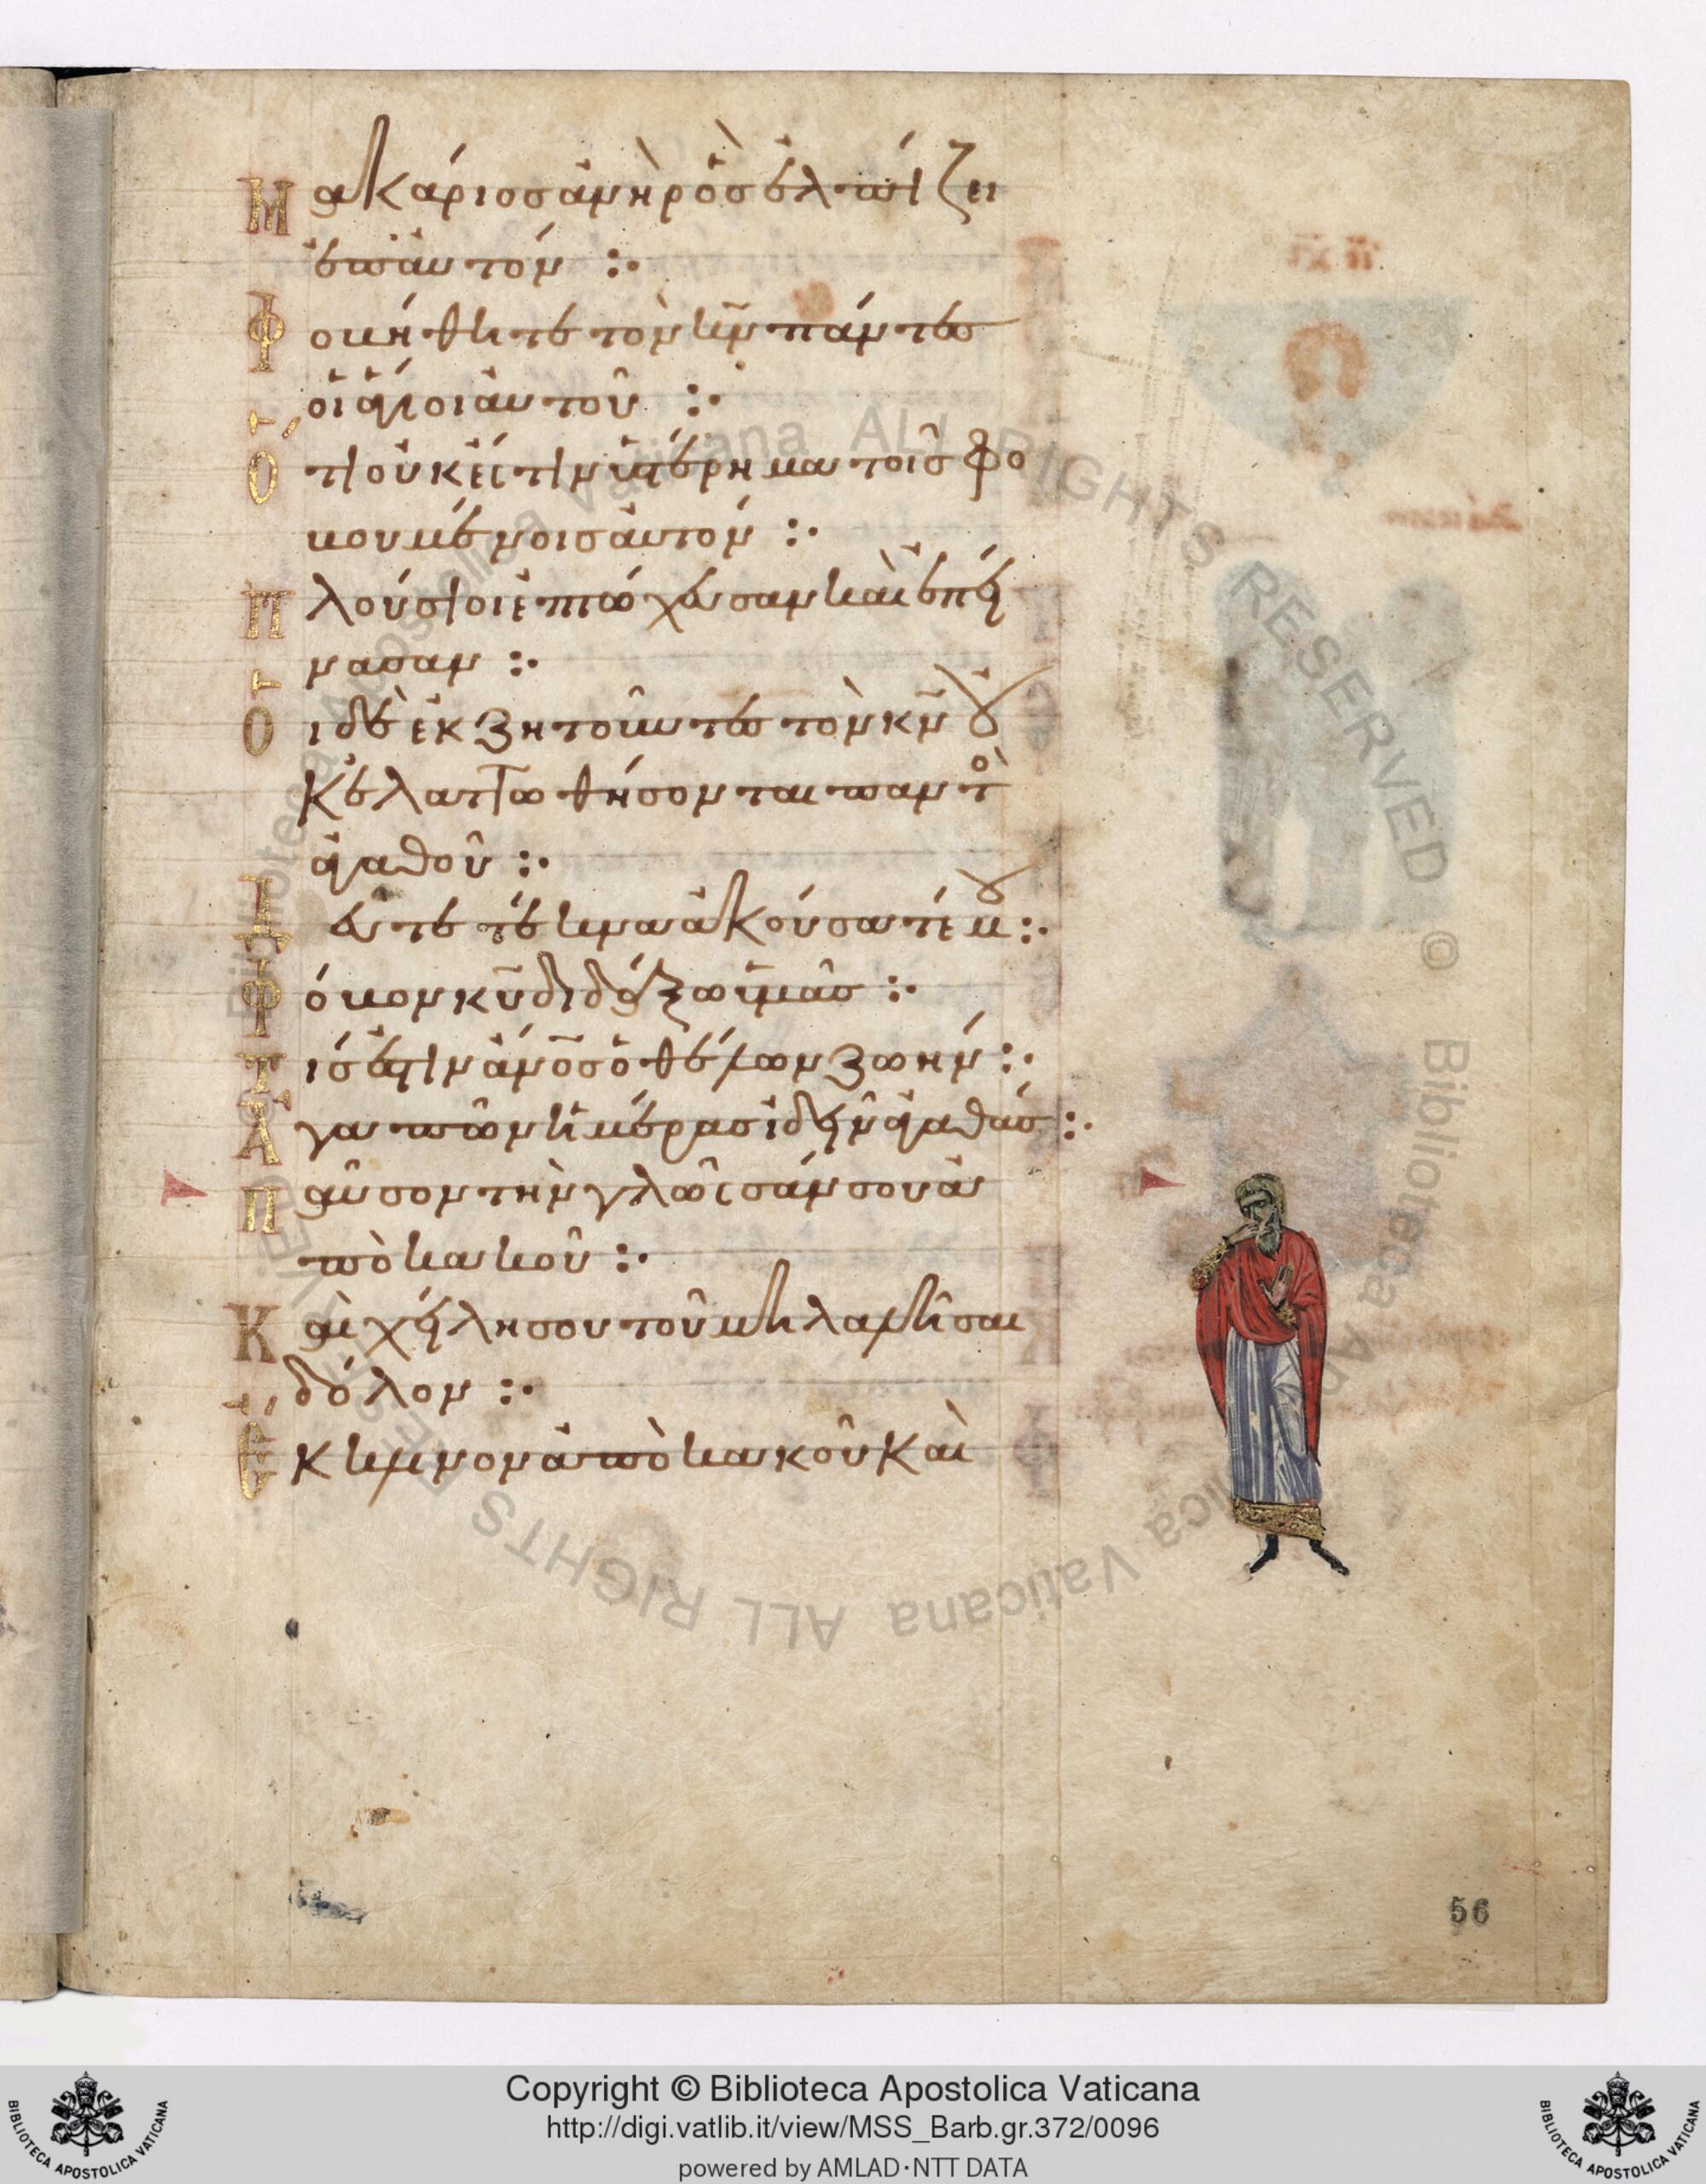 Μακάριος ἀνὴρ ὃς ἐλπίζει
ἐπ' αὐτόν :·
Φοβήθητε τὸν κ̅ν̅ πάντες
οἱ ἅγιοι αὐτοῦ :·
Ὅτι οὐκ ἔστιν ὑστέρημα τοῖς φο
βουμένοις αὐτόν :·
Πλούσιοι ἐπτώχευσαν καὶ ἐπεί
νασαν :·
Οἱ δὲ ἐκζητοῦντες τὸν κ̅ν̅ οὐ
κ ἐλαττωθήσονται παντὸ
ἀγαθοῦ :·
Δεῦτε τέκνα ἀκούσατέ μου :·
Φόβον κ̅υ̅ διδάξω ὑμᾶς :·
Τίς ἐστιν ἄν̅ο̅ς ὁ θέλων ζωήν :·
Ἀγαπῶν ἡμέρας ἰδεῖν ἀγαθάς :·
Παῦσον τὴν γλῶσσάν σου ἀ
πὸ κακοῦ :·
Καὶ χείλη σου τοῦ μὴ λαλῆσαι
δόλον :·
Ἔκκλινον ἀπὸ κακοῦ καὶ
56
Biblioteca Apostolica Vaticana ALL RIGHTS RESERVED © Biblioteca Apostolica Vaticana ALL RIGHTS RESERVED ©
Copyright © Biblioteca Apostolica Vaticana
http://digi.vatlib.it/view/MSS_Barb.gr.372/0096
powered by AMLAD·NTT DATA
BIBLIOTECA APOSTOLICA VATICANA
BIBLIOTECA APOSTOLICA VATICANA